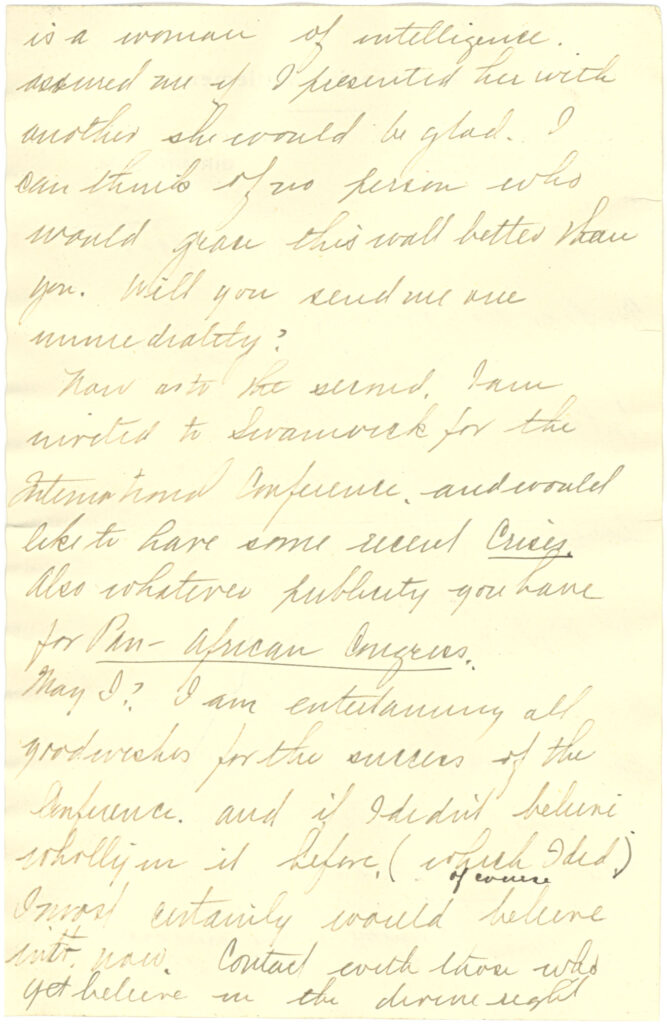 is a woman of intelligence.
assured me if I presented her with
another she would be glad. I
can think of no person who
would grace this wall better than
you. Will you send me one
immediately?
Now as to the second. I am
invited to Swanwick for the
International Conference. and would
like to have some recent Crises.
Also whatever publicity you have
for Pan-African Congress.
May I? I am entertaining all
good wishes for the success of the
Conference. and if I didn't believe
wholly in it before, (which I did)
of course
I most certainly would believe
in it now. Contact with those who
yet believe in the divine right